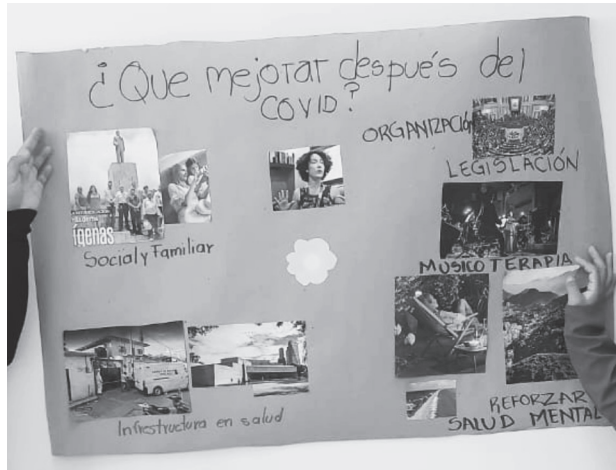 ¿Que mejorar después del
COVID?
ORGANIZACIÓN
LEGISLACIÓN
ígenas
Social y Familiar
MUSICOTERAPIA
Infrestructura en salud
REFORZAR
SALUD MENTAL